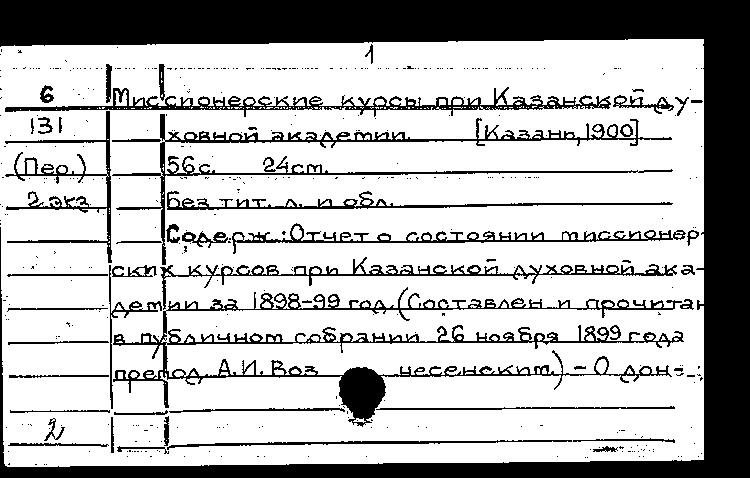 1
6 Миссионерские курсы при Казанской ду-
131 ховной академии. [Казань, 1900].
(Пер.) 56с. 24см.
2 экз Без тит. л. и обл.
Содерж.: Отчет о состоянии миссионер-
ских курсов при Казанской духовной ака-
демии за 1898-99 год. (Составлен и прочитан
в публичном собрании 26 ноября 1899 года
препод. А.И. Воз несенским.) - О дон-
2